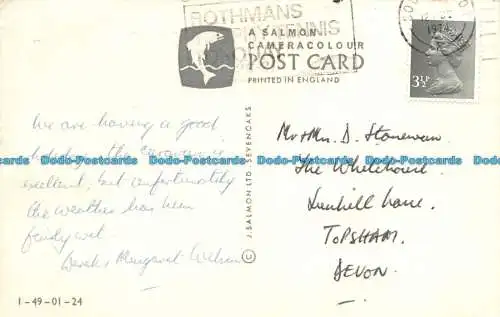 ROTHMANS
TENNIS
1974
3½P
A SALMON
CAMERACOLOUR
POST CARD
PRINTED IN ENGLAND
We are having a good
holiday, the
excellent, but unfortunately
the weather has been
fairly wet.
Derek & Margaret
J. SALMON LTD. SEVENOAKS ©
Mr & Mrs. D. Stoneman
The Whitehouse
Lane.
TOPSHAM.
DEVON.
1-49-01-24
Dodo-Postcards Dodo-Postcards Dodo-Postcards Dodo-Postcards